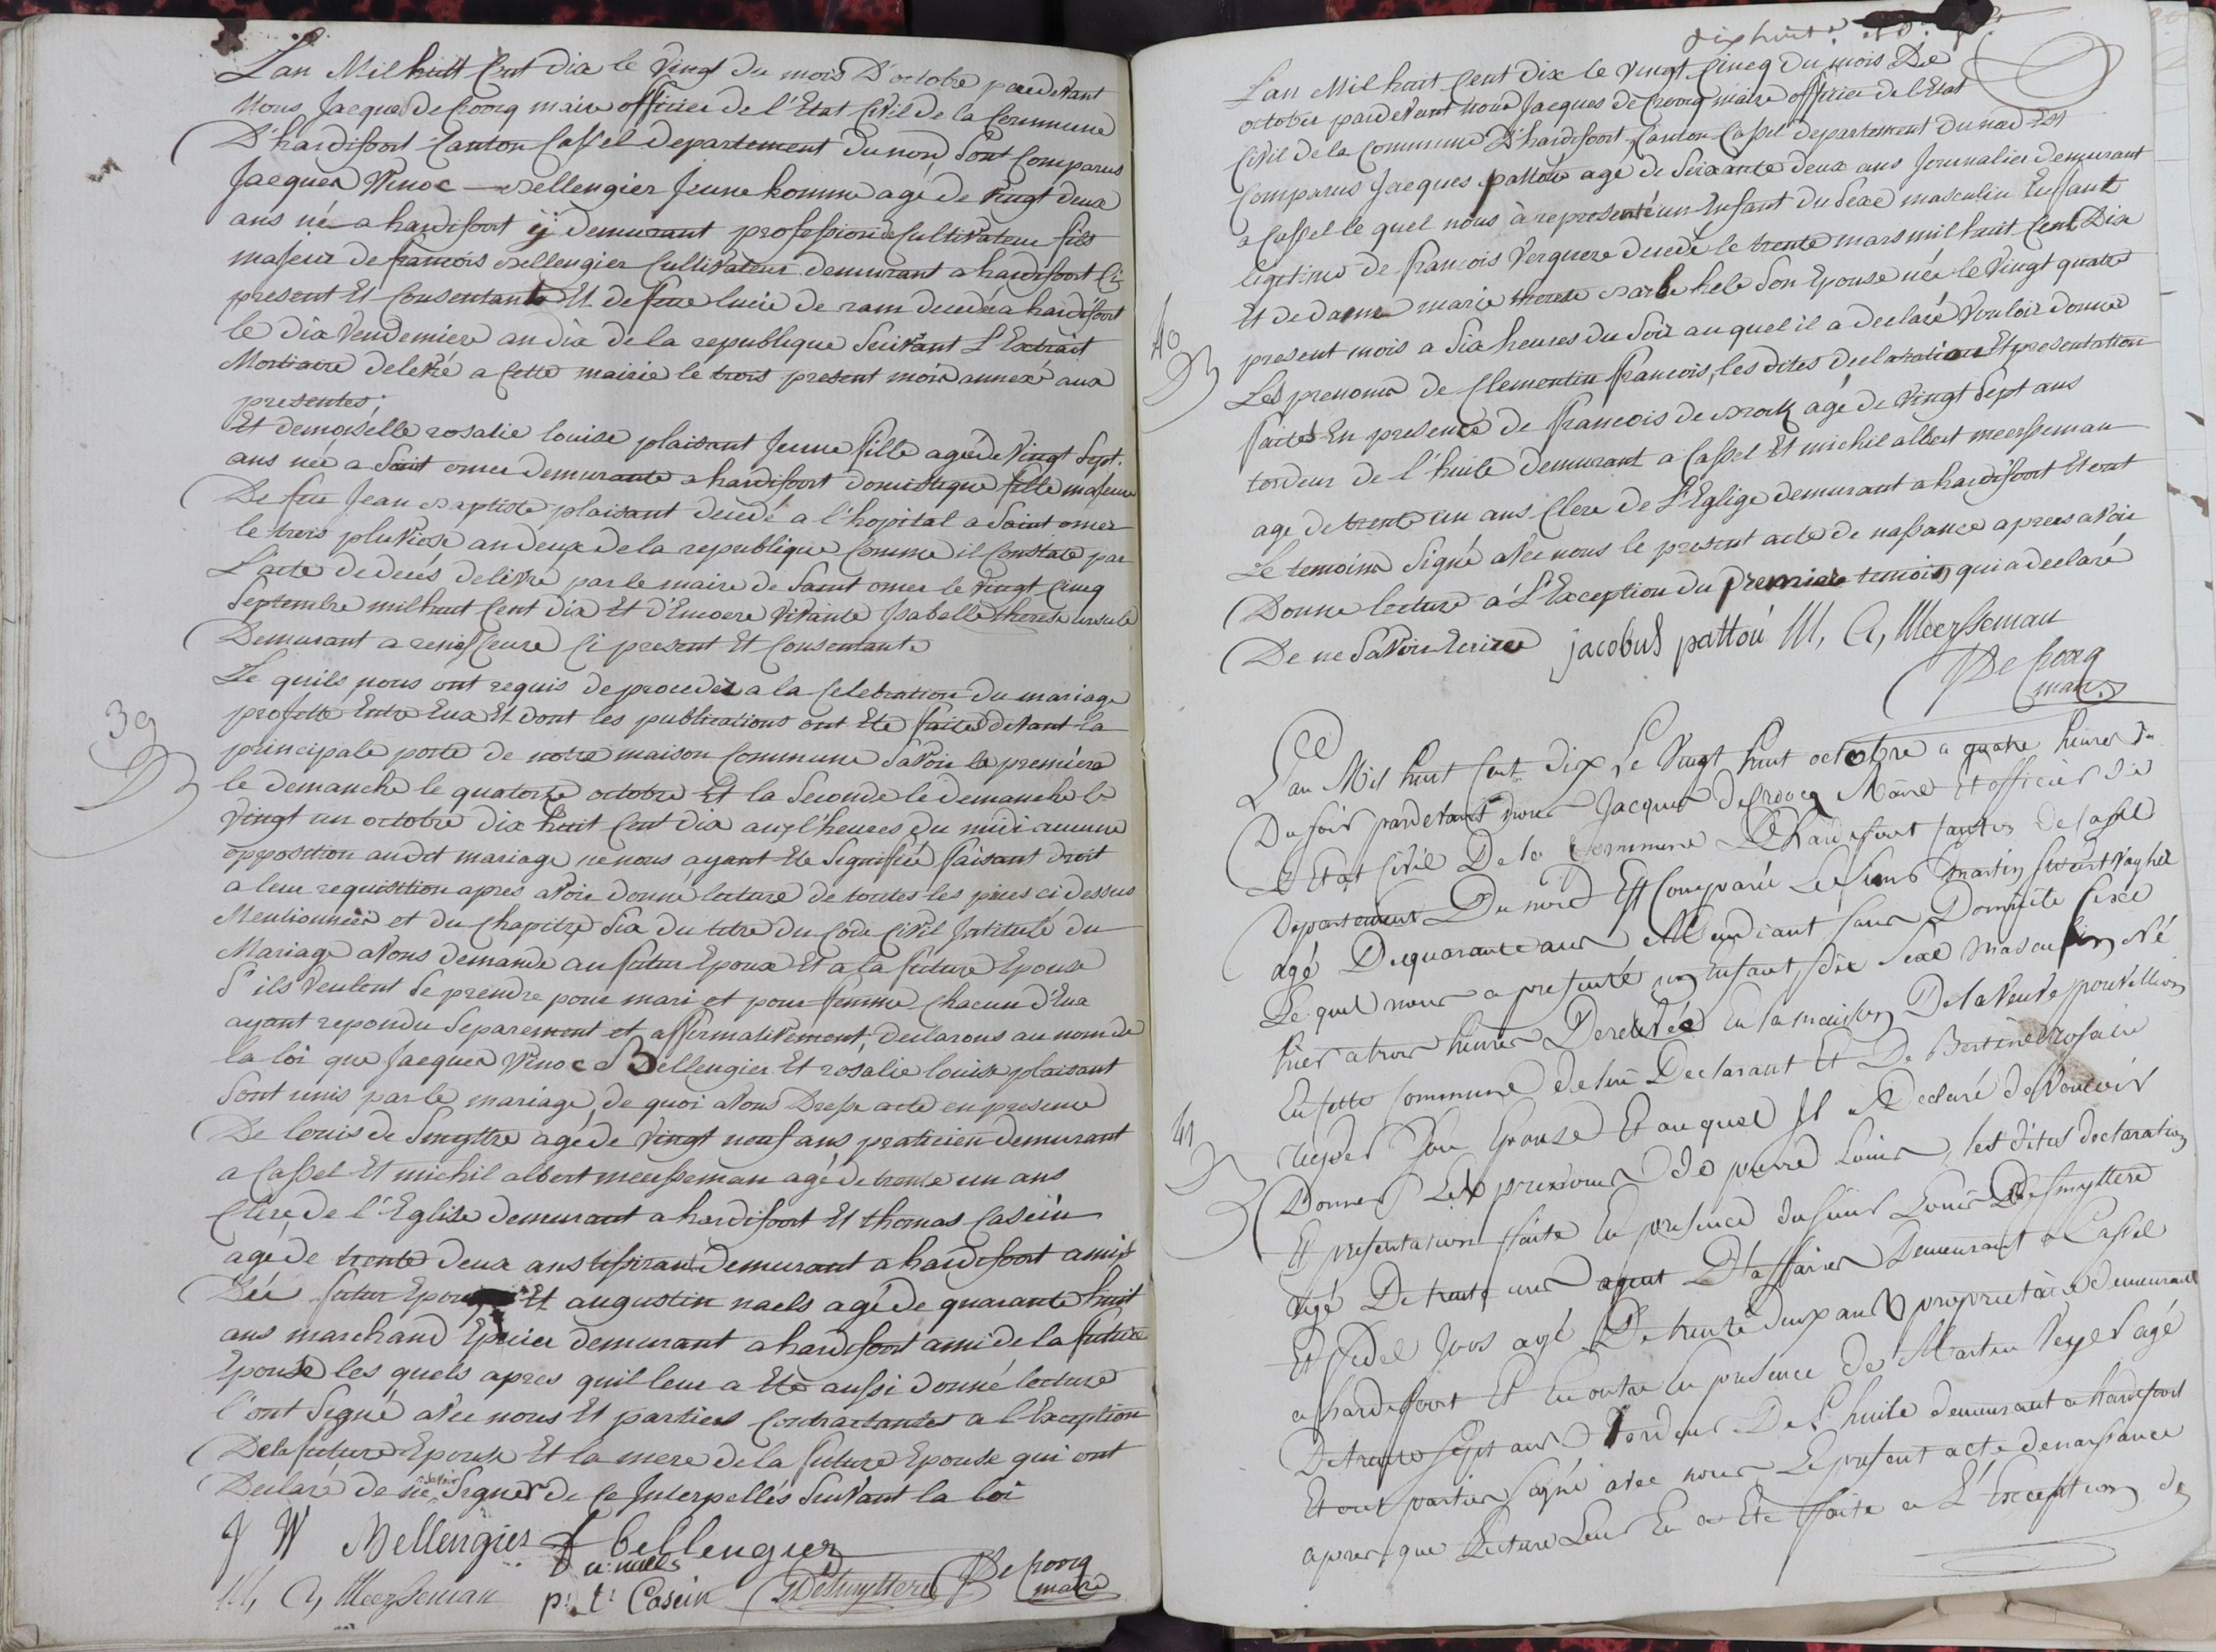 L'an Mil huit Cent dix le vingt du mois D'octobre pardevant
Nous Jacques de Croocq maire officier de l'Etat Civil de la Commune
D'hardifoort Canton Cassel departement du nord Sont Comparus
Jacques Winoc Bellengier Jeune homme agé de vingt deux
ans né a hardifoort ÿ demurant profession de Cultivateur fils
majeur de francois Bellengier Cultivateur demurant a hardifoort Ci
present Et Consentant Et de feue lucie de ram decedée a hardifoort
le dix Vendemiere an dix de la republique Seuivant L'Extrait
Mortuaire delevré a Cette mairie le trois present mois annexé aux
presentes;
Et demoiselle rosalie louise plaisant Jeune fille agée de Vingt Sept
ans née a Saint omer demurante a hardifoort domestique fille majeure
De feu Jean Baptiste plaisant decedé a l'hopital a Saint omer
le trois pluviose an deux de la republique Comme il Constate par
L'acte de decés delivré par le maire de Saint omer le vingt Cinq
Septembre mil huit Cent dix Et d'Encore Vivante Isabelle therese ursule
Demurant a renescure Ci present Et Consentante
Le quils nous ont requis de proceder a la Celebration du mariage
projetté Entre Eux Et dont les publications ont Eté faites devant la
principale porte de notre maison Commune Savoir la premiere
le demanche le quatorze octobre Et la Seconde le demanche le
vingt un octobre dix huit Cent dix aux l'heures du midi aucune
opposition audit mariage ne nous ayant Eté Signifiée faisant droit
a leur requisition apres avoir donné lecture de toutes les pieces ci dessus
Mentionnées et du Chapitre Six du titre du Code Civil Intitulé du
Mariage avons demandé au futur Epoux Et a la future Epouse
S'ils Veulent Se prendre pour mari et pour femme Chacun d'Eux
ayant repondu Separement et affirmativement, declarons au nom de
la loi que Jacques Winoc Bellengier Et rosalie louise plaisant
Sont unis par le mariage, de quoi avons Dressé acte en presence
De louis de Smyttre agé de vingt neuf ans praticien demurant
a Cassel Et michil albert meersseman agé de trente un ans
Clerc de l'Eglise demurant a hardifoort Et thomas Casein
agé de trente deux ans tisserant demurant a hardifoort amis
Dée futur Epoux Et augustin naels agé de quarante huit
ans marchand Epicier demurant a hardifoort ami de la future
Epouse les quels apres quil leur a Eté aussi donné lecture
l'ont Signé avec nous Et parties Contractantes a l'Exception
De la future Epouse Et la mere de la future Epouse qui ont
savoir
Declaré de ne Signer de Ce Interpellés Suivant la loi
J W Bellengier f bellengier
a: naels
M, A, Meersseman p: t: Casein LDeSmyttere JDe Croocq
maire
39
dix huit
L'an Mil huit Cent Dix le vingt Cincq du mois De
octobre pardevant nous Jacques de Croocq maire officier de l'Etat
Civil de la Commune D'hardifoort Canton Cassel departement du nord Est
Comparus Jacques pattou agé de Soixante deux ans Journalier demurant
a Cassel le quel nous à representé un Enfant du Sexe masculin Enffant
legetime de francois Verquere decedé le trente mars mil huit Cent Dix
Et de dame marie therese Son Epouse née le Vingt quatre
present mois a Six heures du Soir au quel il a declaré Vouloir donner
Les prenoms de Clementin francois, les dites declaration Et presentation
faites En presence de francois de Brock agé de vingt Sept ans
tordeur de l'huile demurant a Cassel Et michil albert meersseman
age de trente un ans Clerc de L'Eglise demurant a hardifoort Et ont
Le temoins Signé avec nous le present acte de naissance apres avoir
Donne lecture à L'Exception du premier temoin qui a declaré
De ne Savoir Ecrire jacobus pattou M, A, Meersseman
JDe Croocq
maire
40
L'an Mil huit Cent Dix Le Vingt huit octobre a quatre heures du
Du soir pardevant nous Jacques deCroocq Maire Et officier de
L'Etat Civil De la Commune D'hardifoort Canton de Cassel
Departement Du nord Est Comparu Le sieur Martin Swartvagher
agé De quarante ans Mendiant sans Domicile fixée
Le quel nous a presenté un Enfant du Sexe Masculin Né
hier a trois heures De relevée En la maison De la Veuve
En cette Commune de lui Declarant Et De Bertine Rosalie
Son Epouse Et au quel Il a Declaré de Vouloir
Donner Les prenoms de pierre Louis, les dites declaration
Et presentation faite En presence du sieur Louis DeSmyttere
agé De trente un agent D'affaires Demeurant a Cassel
Et fidel Joos agé De trente deux ans proprietaire demeurant
a hardifoort Et En outre En presence de Martin agé
De trente sept ans Tordeur De l'huile demeurant a hardifoort
Et ont parties signé avec nous Le present acte de naissance
apres que Lecture Leur En a Eté faite a L'Exception de
41